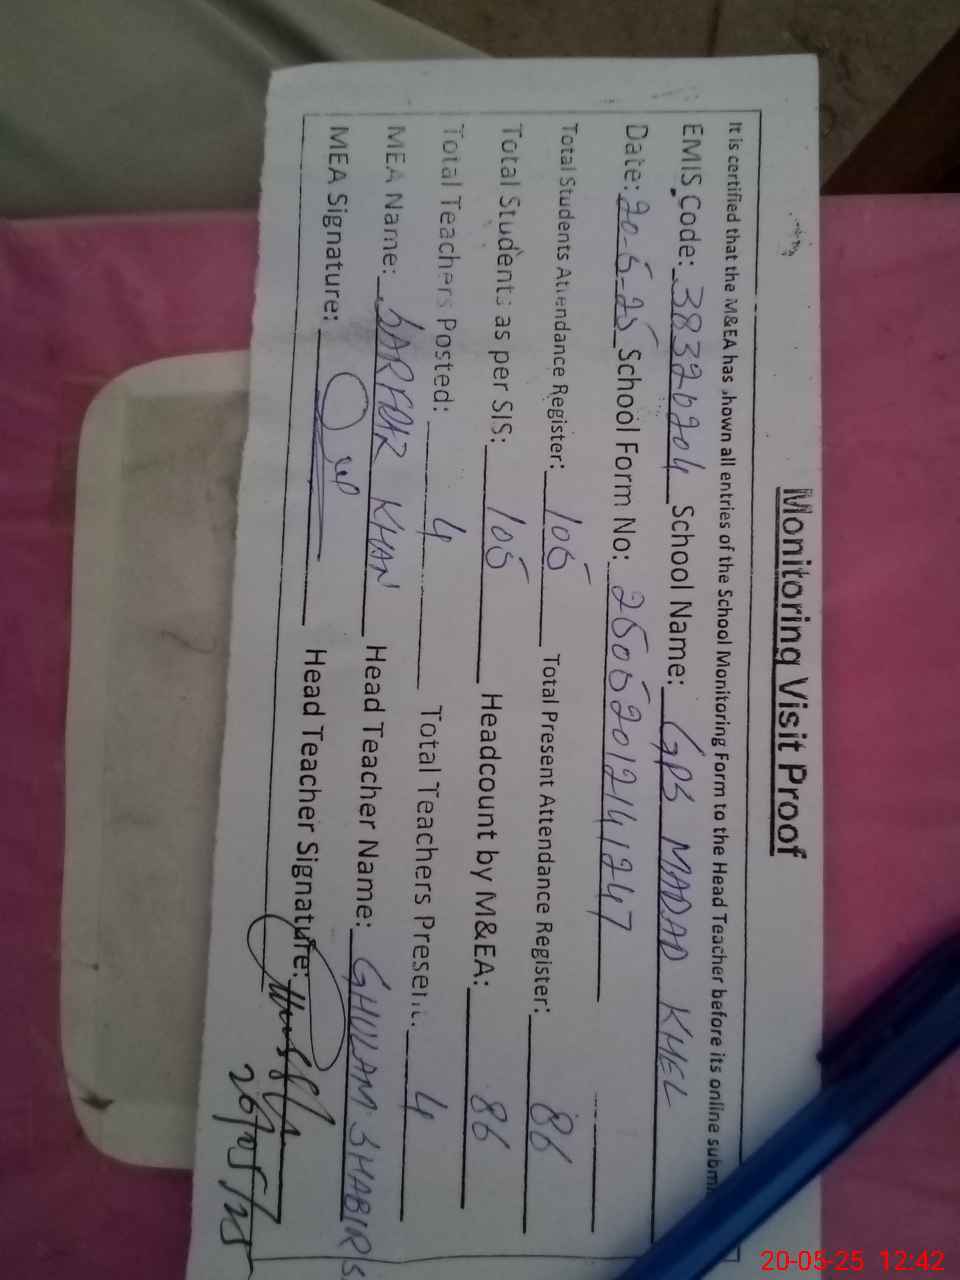 Monitoring Visit Proof
It is certified that the M&EA has shown all entries of the School Monitoring Form to the Head Teacher before its online subm
EMIS Code: 38320204 School Name: GPS MADAD KHEL
Date: 20-5-25 School Form No: 25052012141247
Total Students Attendance Register: 105 Total Present Attendance Register: 86
Total Students as per SIS: 105 Headcount by M&EA: 86
Total Teachers Posted: 4 Total Teachers Present: 4
MEA Name: KHAN Head Teacher Name: GHULAM SHABIR S.
MEA Signature: Head Teacher Signature:
20/05/25
20-05-25 12:42